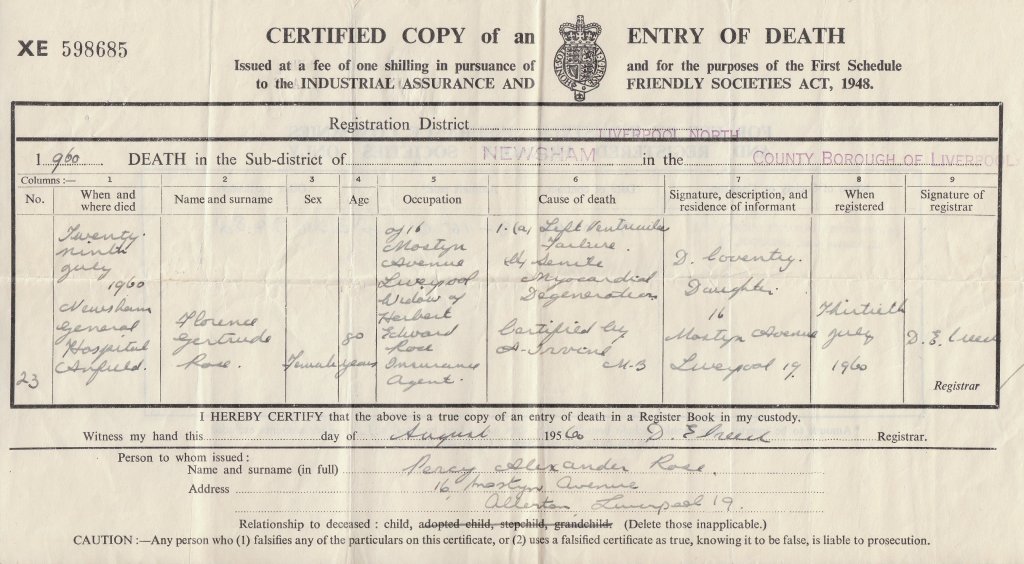 XE 598685
CERTIFIED COPY of an ENTRY OF DEATH
Issued at a fee of one shilling in pursuance of and for the purposes of the First Schedule
to the INDUSTRIAL ASSURANCE AND FRIENDLY SOCIETIES ACT, 1948.
Registration District LIVERPOOL NORTH
1960 DEATH in the Sub-district of NEWSHAM in the COUNTY BOROUGH OF LIVERPOOL
Columns :— 1 2 3 4 5 6 7 8 9
No. When and where died Name and surname Sex Age Occupation Cause of death Signature, description, and residence of informant When registered Signature of registrar
23
Twenty
ninth
July
1960
Newsham
General
Hospital
Anfield.
Florence
Gertrude
Rose.
Female
80
years
of 16
Mostyn
Avenue
Liverpool
Widow of
Herbert
Edward
Rose
Insurance
Agent.
1. (a) Left Ventricular
Failure.
(b) Senile
Myocardial
Degeneration
Certified by
A. Irvine
M.B
D. Coventry.
Daughter
16
Mostyn Avenue
Liverpool 19.
Thirtieth
July
1960
D. E.
Registrar
I HEREBY CERTIFY that the above is a true copy of an entry of death in a Register Book in my custody.
Witness my hand this day of August 1960 D. E. Registrar.
Person to whom issued :
Name and surname (in full) Percy Alexander Rose.
Address 16, Mostyn Avenue
Allerton, Liverpool 19.
Relationship to deceased : child, adopted child, stepchild, grandchild. (Delete those inapplicable.)
CAUTION :—Any person who (1) falsifies any of the particulars on this certificate, or (2) uses a falsified certificate as true, knowing it to be false, is liable to prosecution.